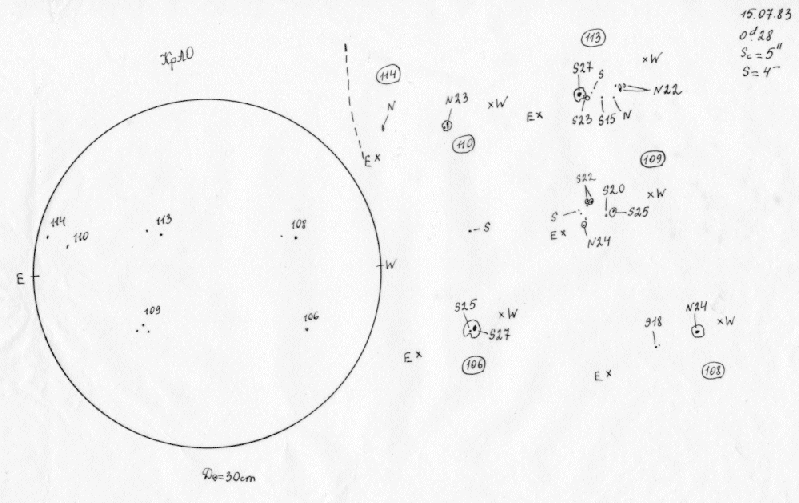 15.07.83
0ᵈ.28
Sc = 5"
S = 4-
КрАО
114
N
E×
N23
×W
110
113
S27
S
×W
N22
E×
S23
S15
N
109
S22
S20
×W
S
S25
E×
N24
S
S25
×W
S27
E×
106
S18
N24
×W
E×
108
114
110
113
108
E
W
109
106
D⊙=30cm